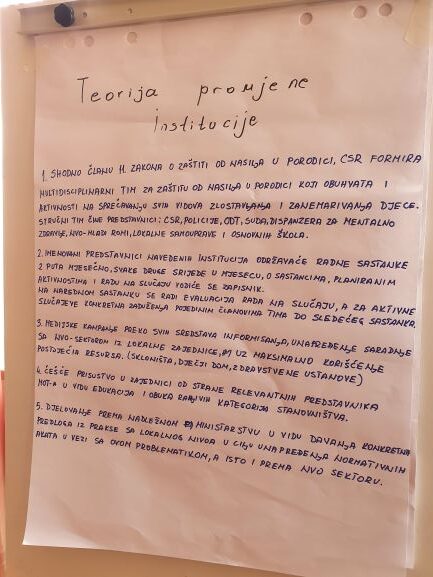 Teorija promjene
institucije
1. SHODNO ČLANU 11. ZAKONA O ZAŠTITI OD NASILJA U PORODICI, CSR FORMIRA
MULTIDISCIPLINARNI TIM ZA ZAŠTITU OD NASILJA U PORODICI KOJI OBUHVATA I
AKTIVNOSTI NA SPREČAVANJU SVIH VIDOVA ZLOSTAVLJANJA I ZANEMARIVANJA DJECE.
STRUČNI TIM ČINE PREDSTAVNICI: CSR, POLICIJE, ODT, SUDA, DISPANZERA ZA MENTALNO
ZDRAVLJE, NVO-MLADI ROMI, LOKALNE SAMOUPRAVE I OSNOVNIH ŠKOLA.
2. IMENOVANI PREDSTAVNICI NAVEDENIH INSTITUCIJA ODRŽAVAĆE RADNE SASTANKE
2 PUTA MJESEČNO, SVAKE DRUGE SRIJEDE U MJESECU, O SASTANCIMA, PLANIRANIM
AKTIVNOSTIMA I RADU NA SLUČAJU VODIĆE SE ZAPISNIK.
NA NAREDNOM SASTANKU SE RADI EVALUACIJA RADA NA SLUČAJU, A ZA AKTIVNE
SLUČAJEVE KONKRETNA ZADUŽENJA POJEDINIM ČLANOVIMA TIMA DO SLEDEĆEG SASTANKA.
3. MEDIJSKE KAMPANJE PREKO SVIH SREDSTAVA INFORMISANJA, UNAPREĐENJE SARADNJE
SA NVO-SEKTOROM IZ LOKALNE ZAJEDNICE, UZ MAKSIMALNO KORIŠĆENJE
POSTOJEĆIH RESURSA. (SKLONIŠTA, DJEČJI DOM, ZDRAVSTVENE USTANOVE)
4. ČEŠĆE PRISUSTVO U ZAJEDNICI OD STRANE RELEVANTNIH PREDSTAVNIKA
MDT-A U VIDU EDUKACIJA I OBUKA RANJIVIH KATEGORIJA STANOVNIŠTVA.
5. DJELOVANJE PREMA NADLEŽNOM MINISTARSTVU U VIDU DAVANJA KONKRETNIH
PREDLOGA IZ PRAKSE SA LOKALNOG NIVOA U CILJU UNAPREĐENJA NORMATIVNIH
AKATA U VEZI SA OVOM PROBLEMATIKOM, A ISTO I PREMA NVO SEKTORU.